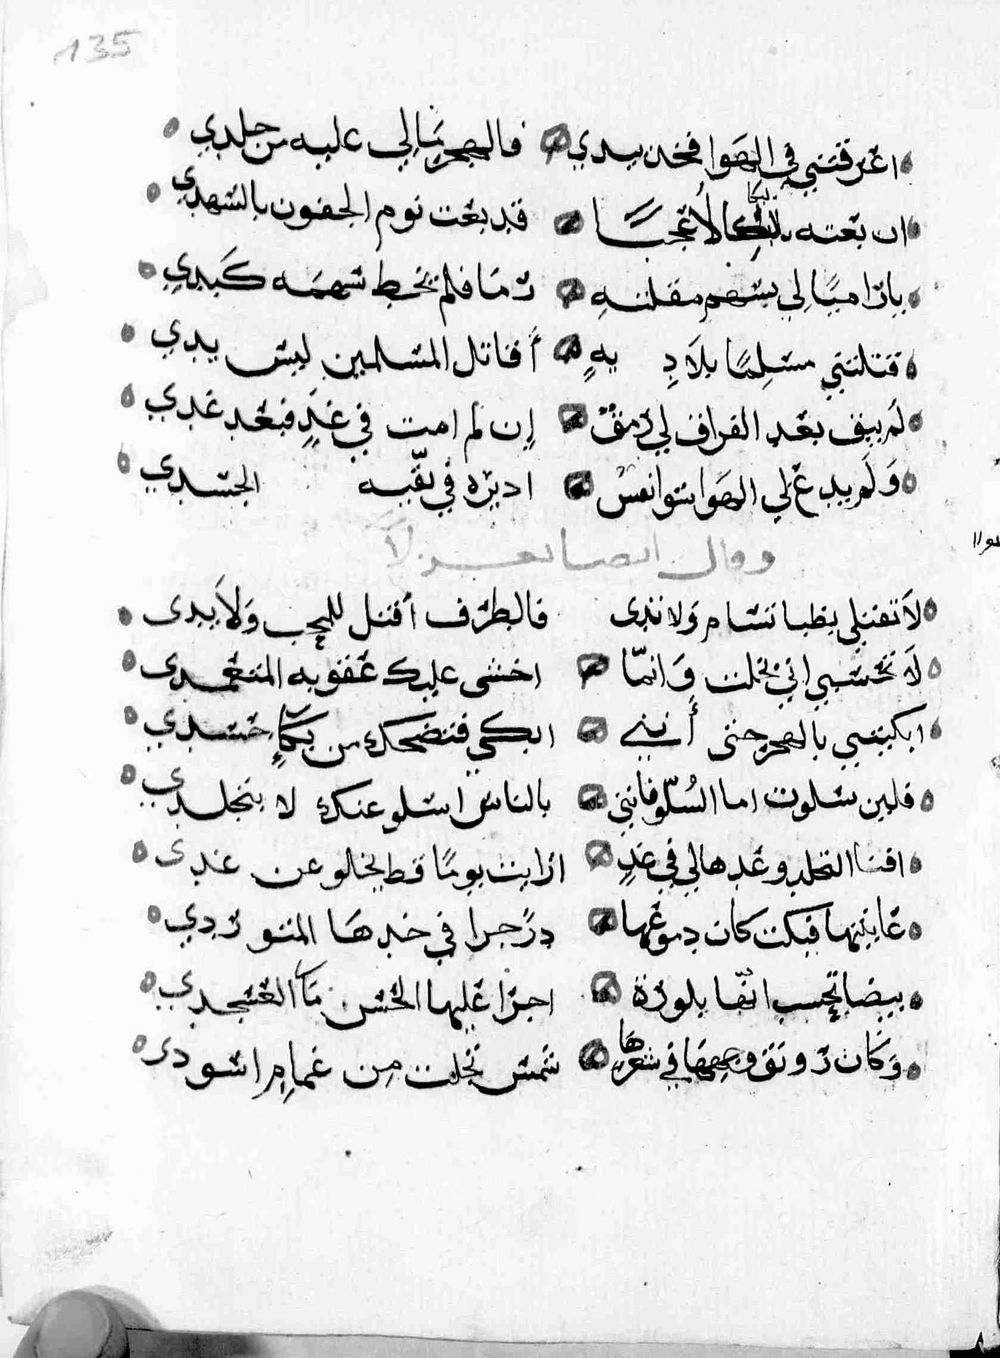 135
اغرقتني في الهوا فخذ بيدي فالهجر مالي عليه من جلدي
ان بعته بالبكا لا عجبًا قد بعت نوم الجفون بالسهدي
يا راميًا لي بسهم مقلته رمَا فلم يخط سهمَه كَبدي
قتلتني مسلِمًا بلَا دِيهٍ أقاتل المسلمين ليس يدي
لم يبق بعد الفراق لي رمقٌ إن لم امت في غدٍ فبعد غدي
وَلَم يدع لي الهوا سوا نفس اديره في بقّيه الجسدي
وقال ايضا تغزلاً
لَا تقتلي بظبا تسام ولا تدى فالطرف أقتل للمحب وَلَا يدى
لَا تحسبي اني بخلت وَانمّا اخشى عليك عقوبه المتعمدى
ابكيتني بالهجر حتى أنني ابكي فتضحك من بكاءِ حسدي
فلين سلوت اما السُلّو فانني بالناس اسلو عنك لا بتجلدي
افنا التجلد وغدها لي في غدٍ ارايت يومًا قط يخلو عن غدى
عاينتها فبكت كان دموعَها درًجرا في خدهَا المتوردي
بيضا تحسب انّها بلورة اجرَا عليها الحسن مَاَ العسجدي
وَكَان رونق وجهها في شعرها شمس تجلت مِن غمامٍ اسودى